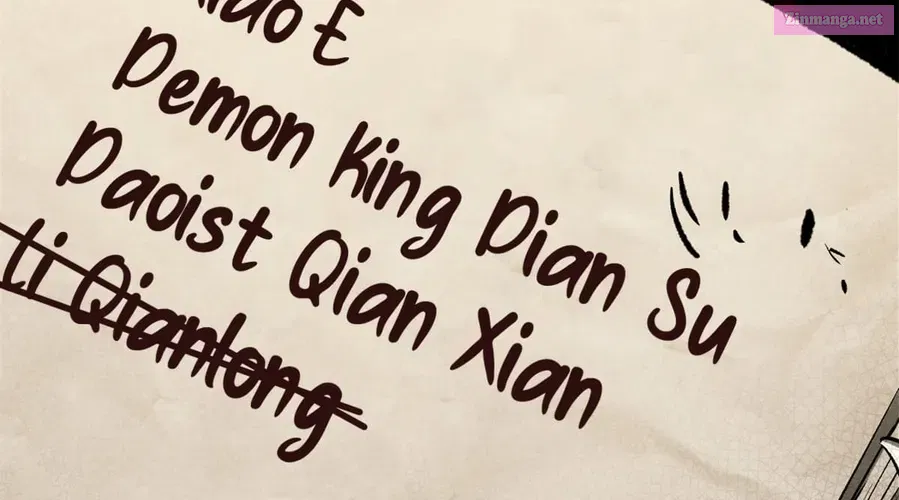 Zinmanga.net
E
Demon King Dian Su
Daoist Qian Xian
Li Qianlong